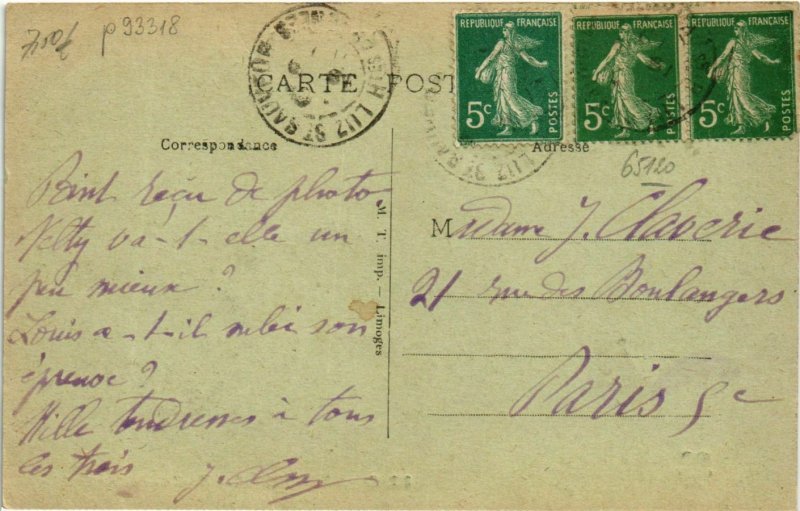 7,50f p 93318
CARTE POST
LUZ ST SAUVEUR
RÉPUBLIQUE FRANÇAISE
5c POSTES
RÉPUBLIQUE FRANÇAISE
5c POSTES
RÉPUBLIQUE FRANÇAISE
5c POSTES
Correspondance
Adresse
65120
Point reçu de photo
Nelty va-t-elle un
peu mieux ?
Louis a-t-il subi son
épreuve ?
Mille tendresses à tous
les trois
M. T. imp. — Limoges
Madame J. Claverie
21 rue des Boulangers
Paris 5e